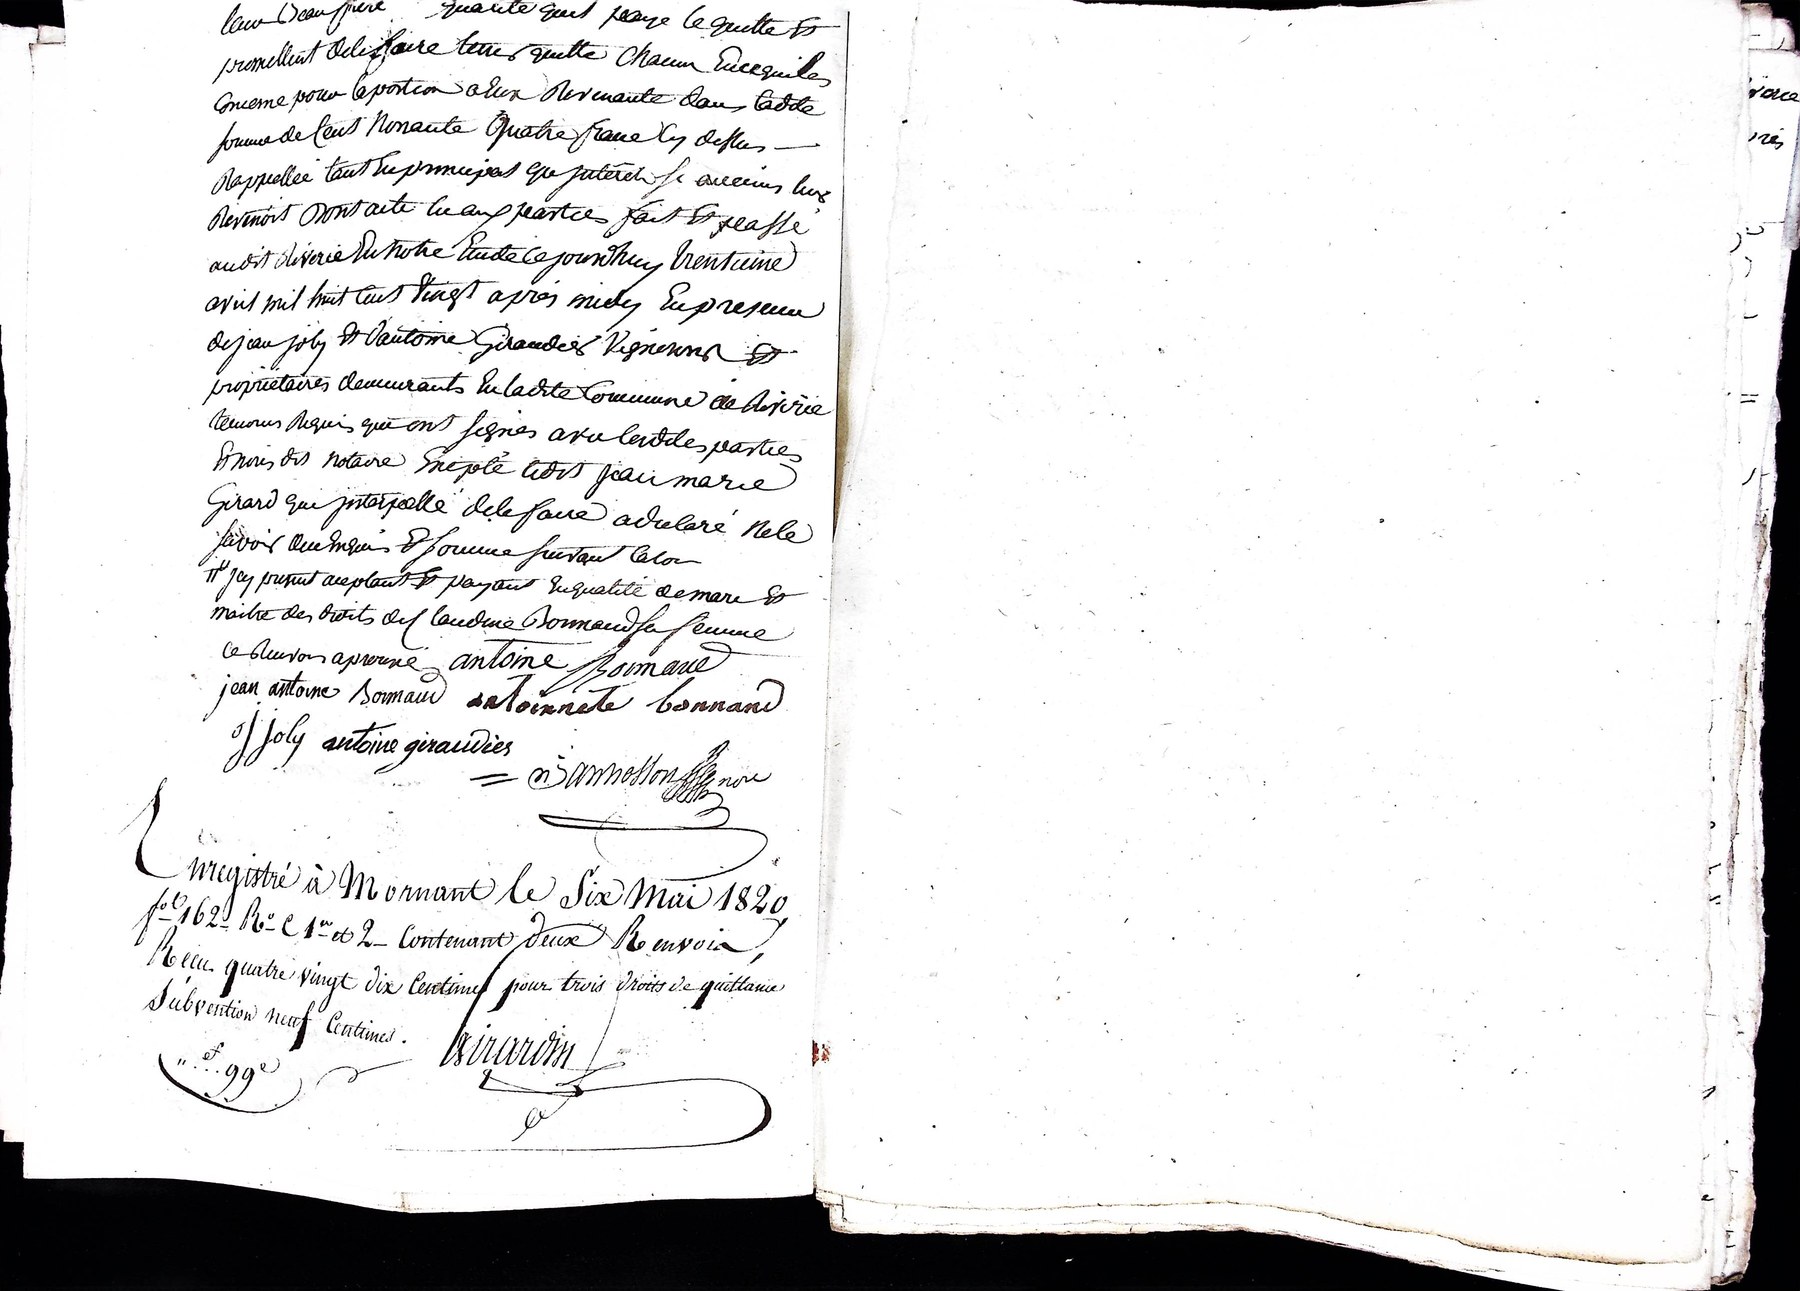 leur Beau frere quantité quil paye le quitte Et
promettent de le faire tenir quitte chacun En ce qui les
Concerne pour la portion a Eux Revenante dans ladite
somme de Cent Nonante Quatre franc Cy dessus —
Rappellée tant En principal que jnterets si aucuns leurs
Revenoit Dont acte lu aux parties fait Et passé
audit Riverie En notre Etude Cejourdhuy trentieme
avril mil huit Cent Vingt après midy En presence
de jean joly Et dantoine Giraudier Vignerons Et
proprietaires demeurants En ladite Commune de Riverie
temoins Requis qui ont signés avec lesdites parties
Et nous dit notaire Excepté ledit jean marie
Girard qui jnterpellé de le faire a declaré Ne le
savoir de ce Enquis Et somme suivant la loi
jcy present acceptant Et payant En qualité de mari Et
maitre des droits de Claudine Bonnand sa femme
ce Renvoi aprouvé antoine Bonnand
jean antoine Bonnand antoinnete bonnand
j joly antoine giraudier
not
Enregistré à Mornant le Six Mai 1820
fol 162 Ro C 1re et 2 Contenant deux Renvois,
Reçu quatre vingt dix Centimes pour trois droits de quittance
Subvention neuf Centimes.
Girardin
"f. 99c